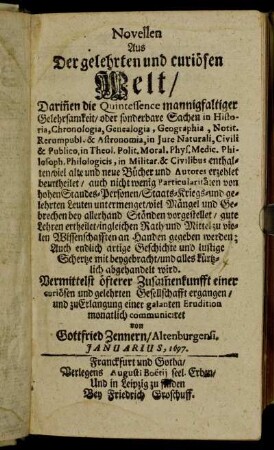 Novellen
Aus
Der gelehrten und curiösen
Welt/
Dariñen die Quintessence mannigfaltiger
Gelehrsamkeit/ oder sonderbare Sachen in Histo-
ria, Chronologia, Genealogia, Geographia, Notit.
Rerumpubl. & Astronomia, in Jure Naturali, Civili
& Publico, in Theol. Polit. Moral. Phys. Medic. Phi-
losoph. Philologicis, in Militar. & Civilibus enthal-
ten/ viel alte und neue Bücher und Autores erzehlet
beurtheilet/ auch nicht wenig Particularitäten von
hohen Stands-Personen/ Staats-Kriegs- und ge-
lehrten Leuten untermenget/ viel Mängel und Ge-
brechen bey allerhand Ständen vorgestellet/ gute
Lehren ertheilet/ ingleichen Rath und Mittel zu vie-
len Wissenschafften an Handen gegeben werden;
Auch endlich artige Geschichte und lustige
Schertze mit beygebracht/ und alles kürtz-
lich abgehandelt wird.
Vermittelst öfterer Zusamenkunfft einer
curiösen und gelehrten Gesellschafft ergangen/
und zu Erlangung einer galanten Erudition
monatlich communicitet
von
Gottfried Zennern/ Altenburgensi.
JANUARIUS, 1697.
Franckfurt und Gotha/
Verlegens Augusti Boëtij seel. Erben/
Und in Leipzig zu finden
Bey Friedrich Groschuff.